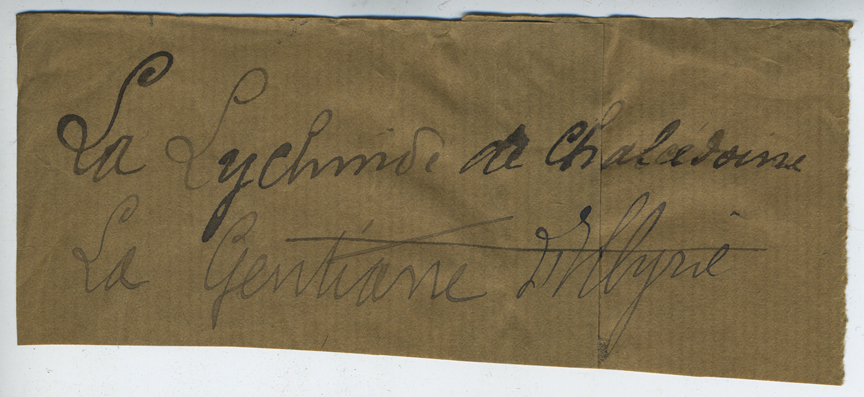 La Lychnide de Chalcédoine
La Gentiane D'Illyrie